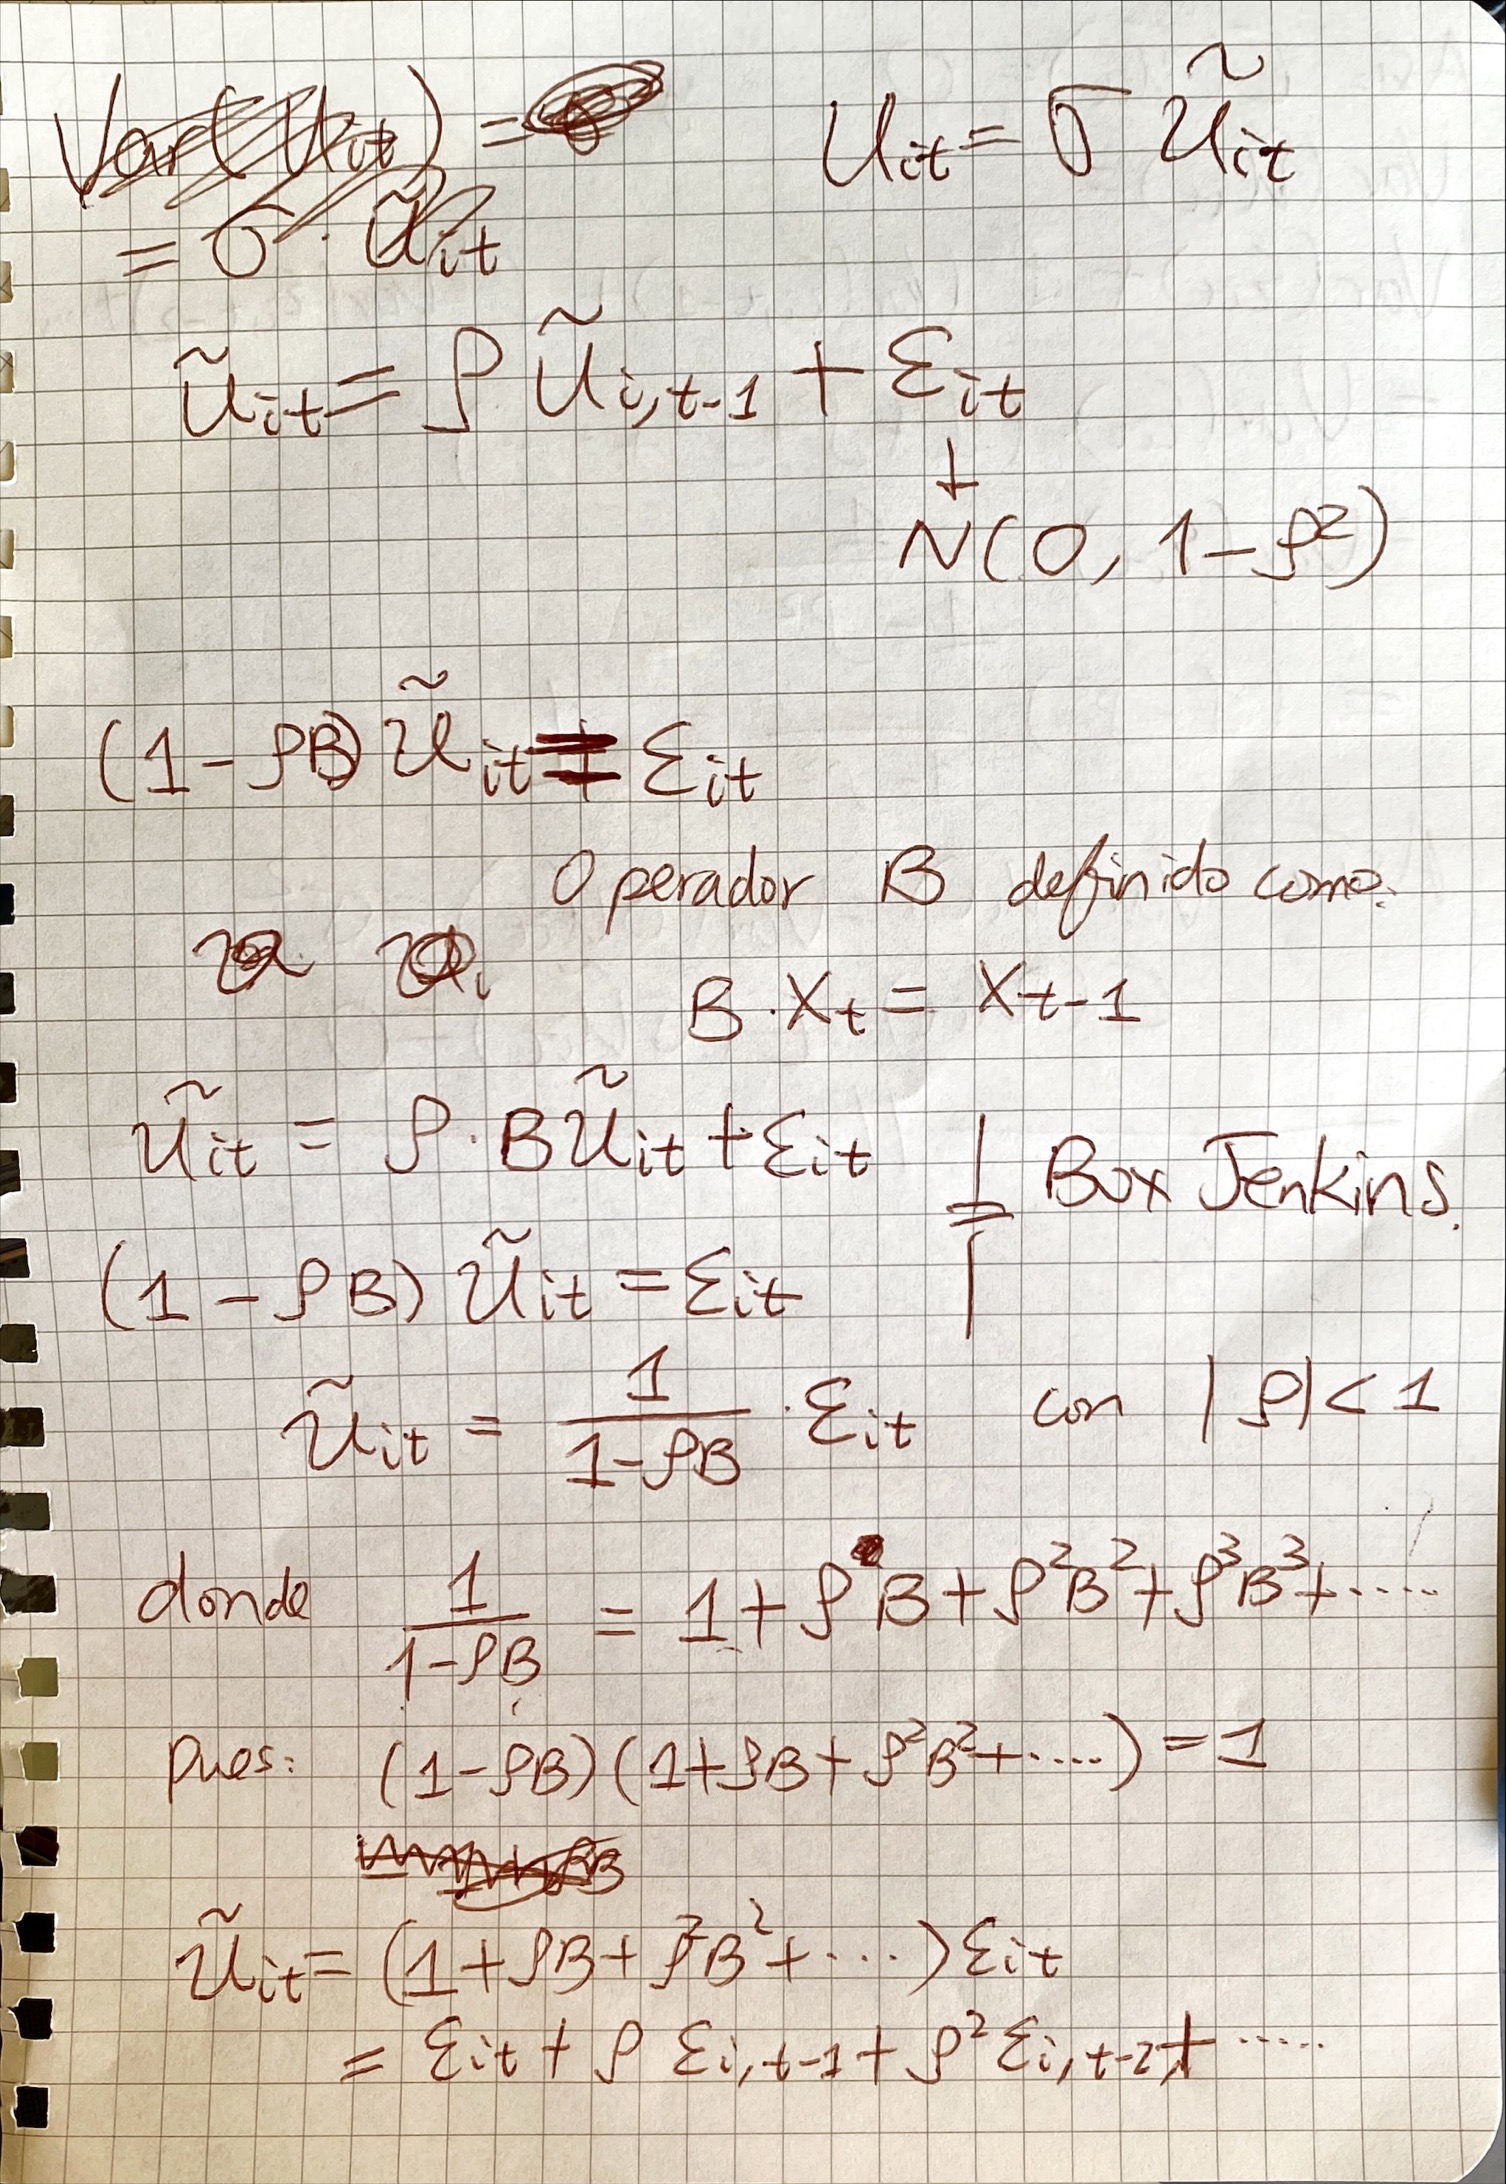 Var(Uit) =
Uit = σ Ũit
= σ · Ũit
Ũit = ρ Ũi,t-1 + εit
↓
N(0, 1-ρ²)
(1-ρB) Ũit = εit
Operador B definido como:
B · Xt = Xt-1
Ũit = ρ · B Ũit + εit
Box Jenkins.
(1 - ρB) Ũit = εit
Ũit = 1/(1-ρB) · εit con |ρ| < 1
donde 1/(1-ρB) = 1 + ρB + ρ²B² + ρ³B³ + .....
Pues: (1-ρB)(1+ρB+ρ²B²+....) = 1
Ũit = (1+ρB+ρ²B²+...) εit
= εit + ρ εi,t-1 + ρ² εi,t-2 + .....